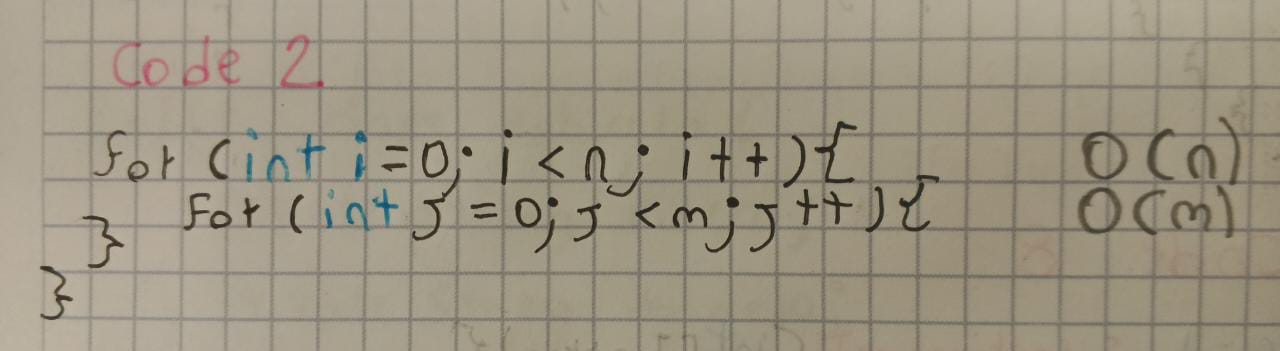 Code 2
for (int i = 0; i < n; i++){ O(n)
for (int j = 0; j < m; j++){ O(m)
}
}